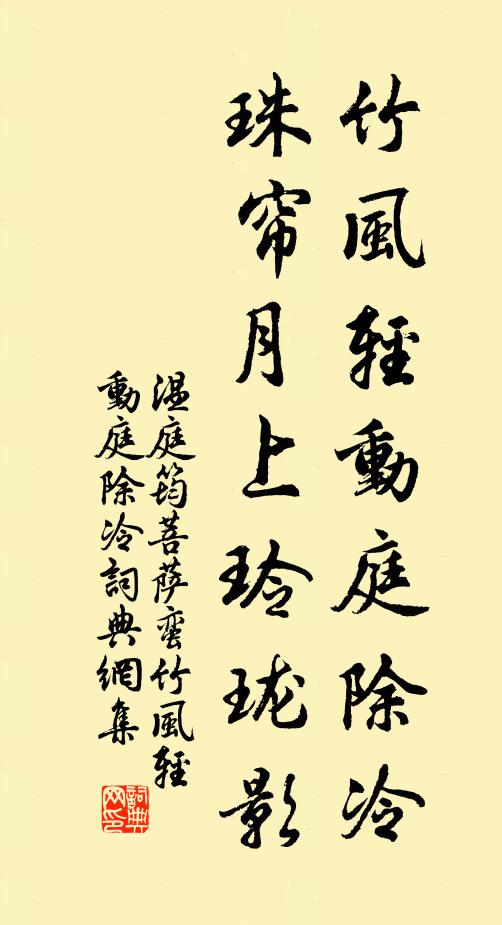 竹風輕動庭除冷
珠帘月上玲珑影
温庭筠菩萨蛮竹風輕
動庭除冷詞典網集
詞典網印